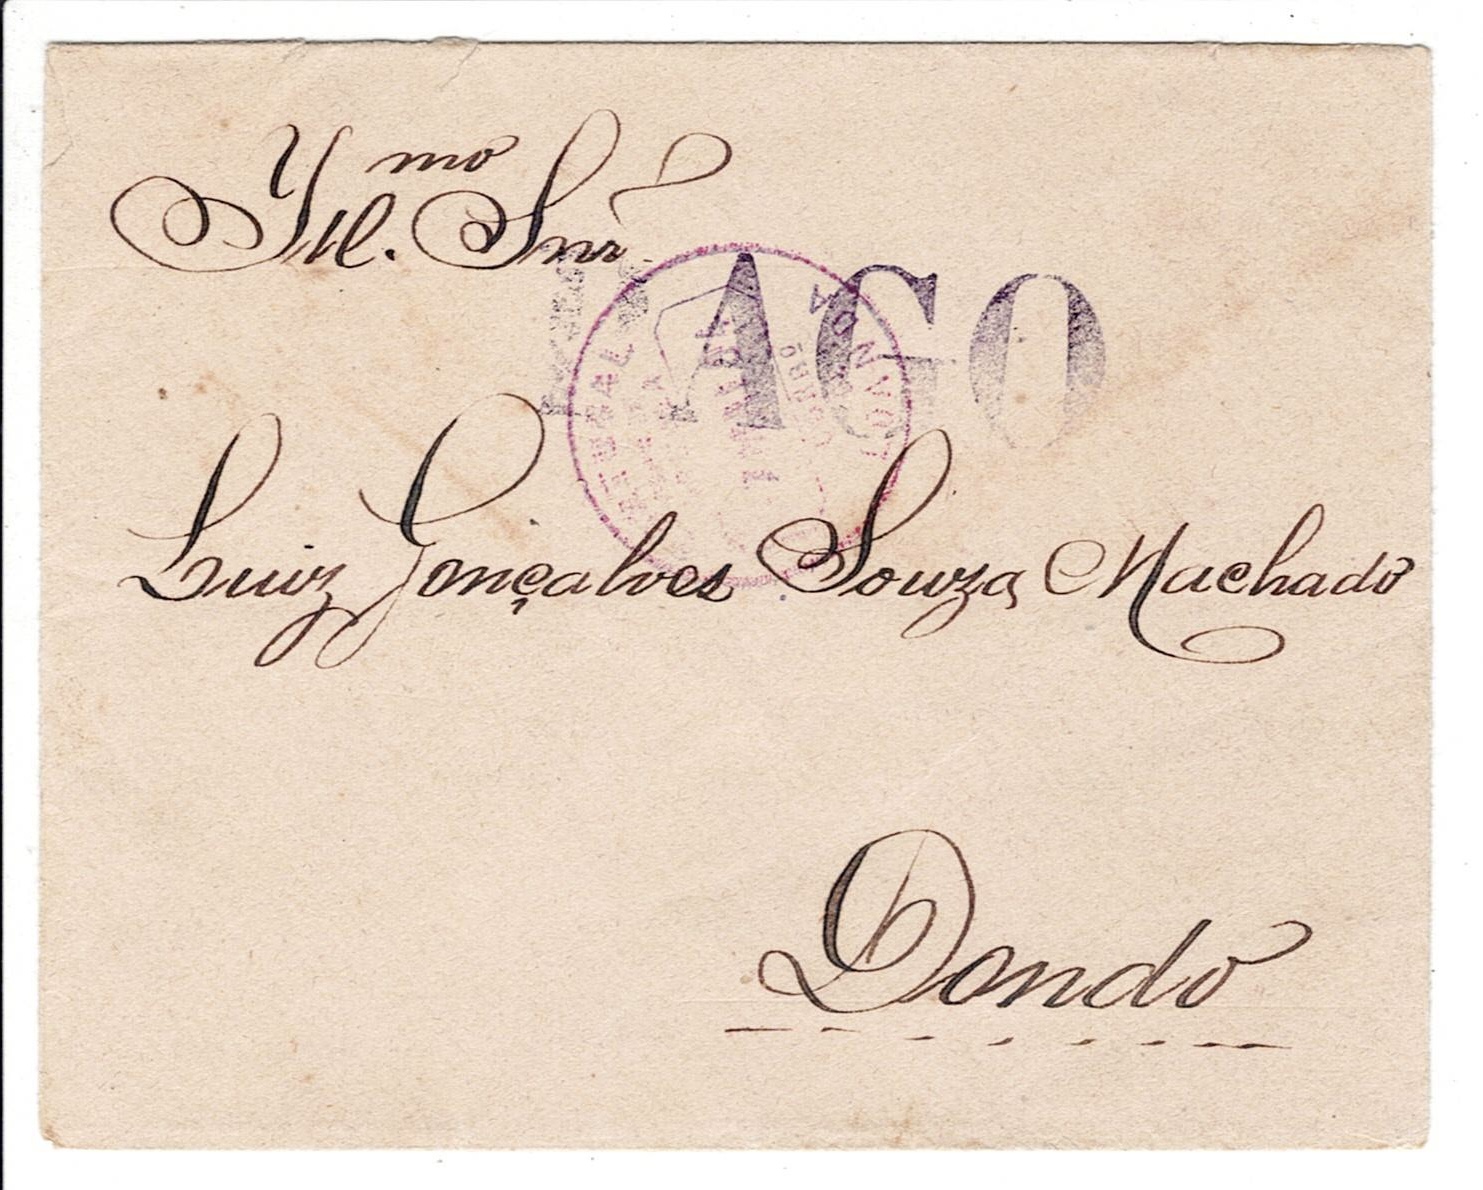 Ill.mo Snr
PAGO
LOANDA
Luiz Gonçalves Souza Machado
Dondo